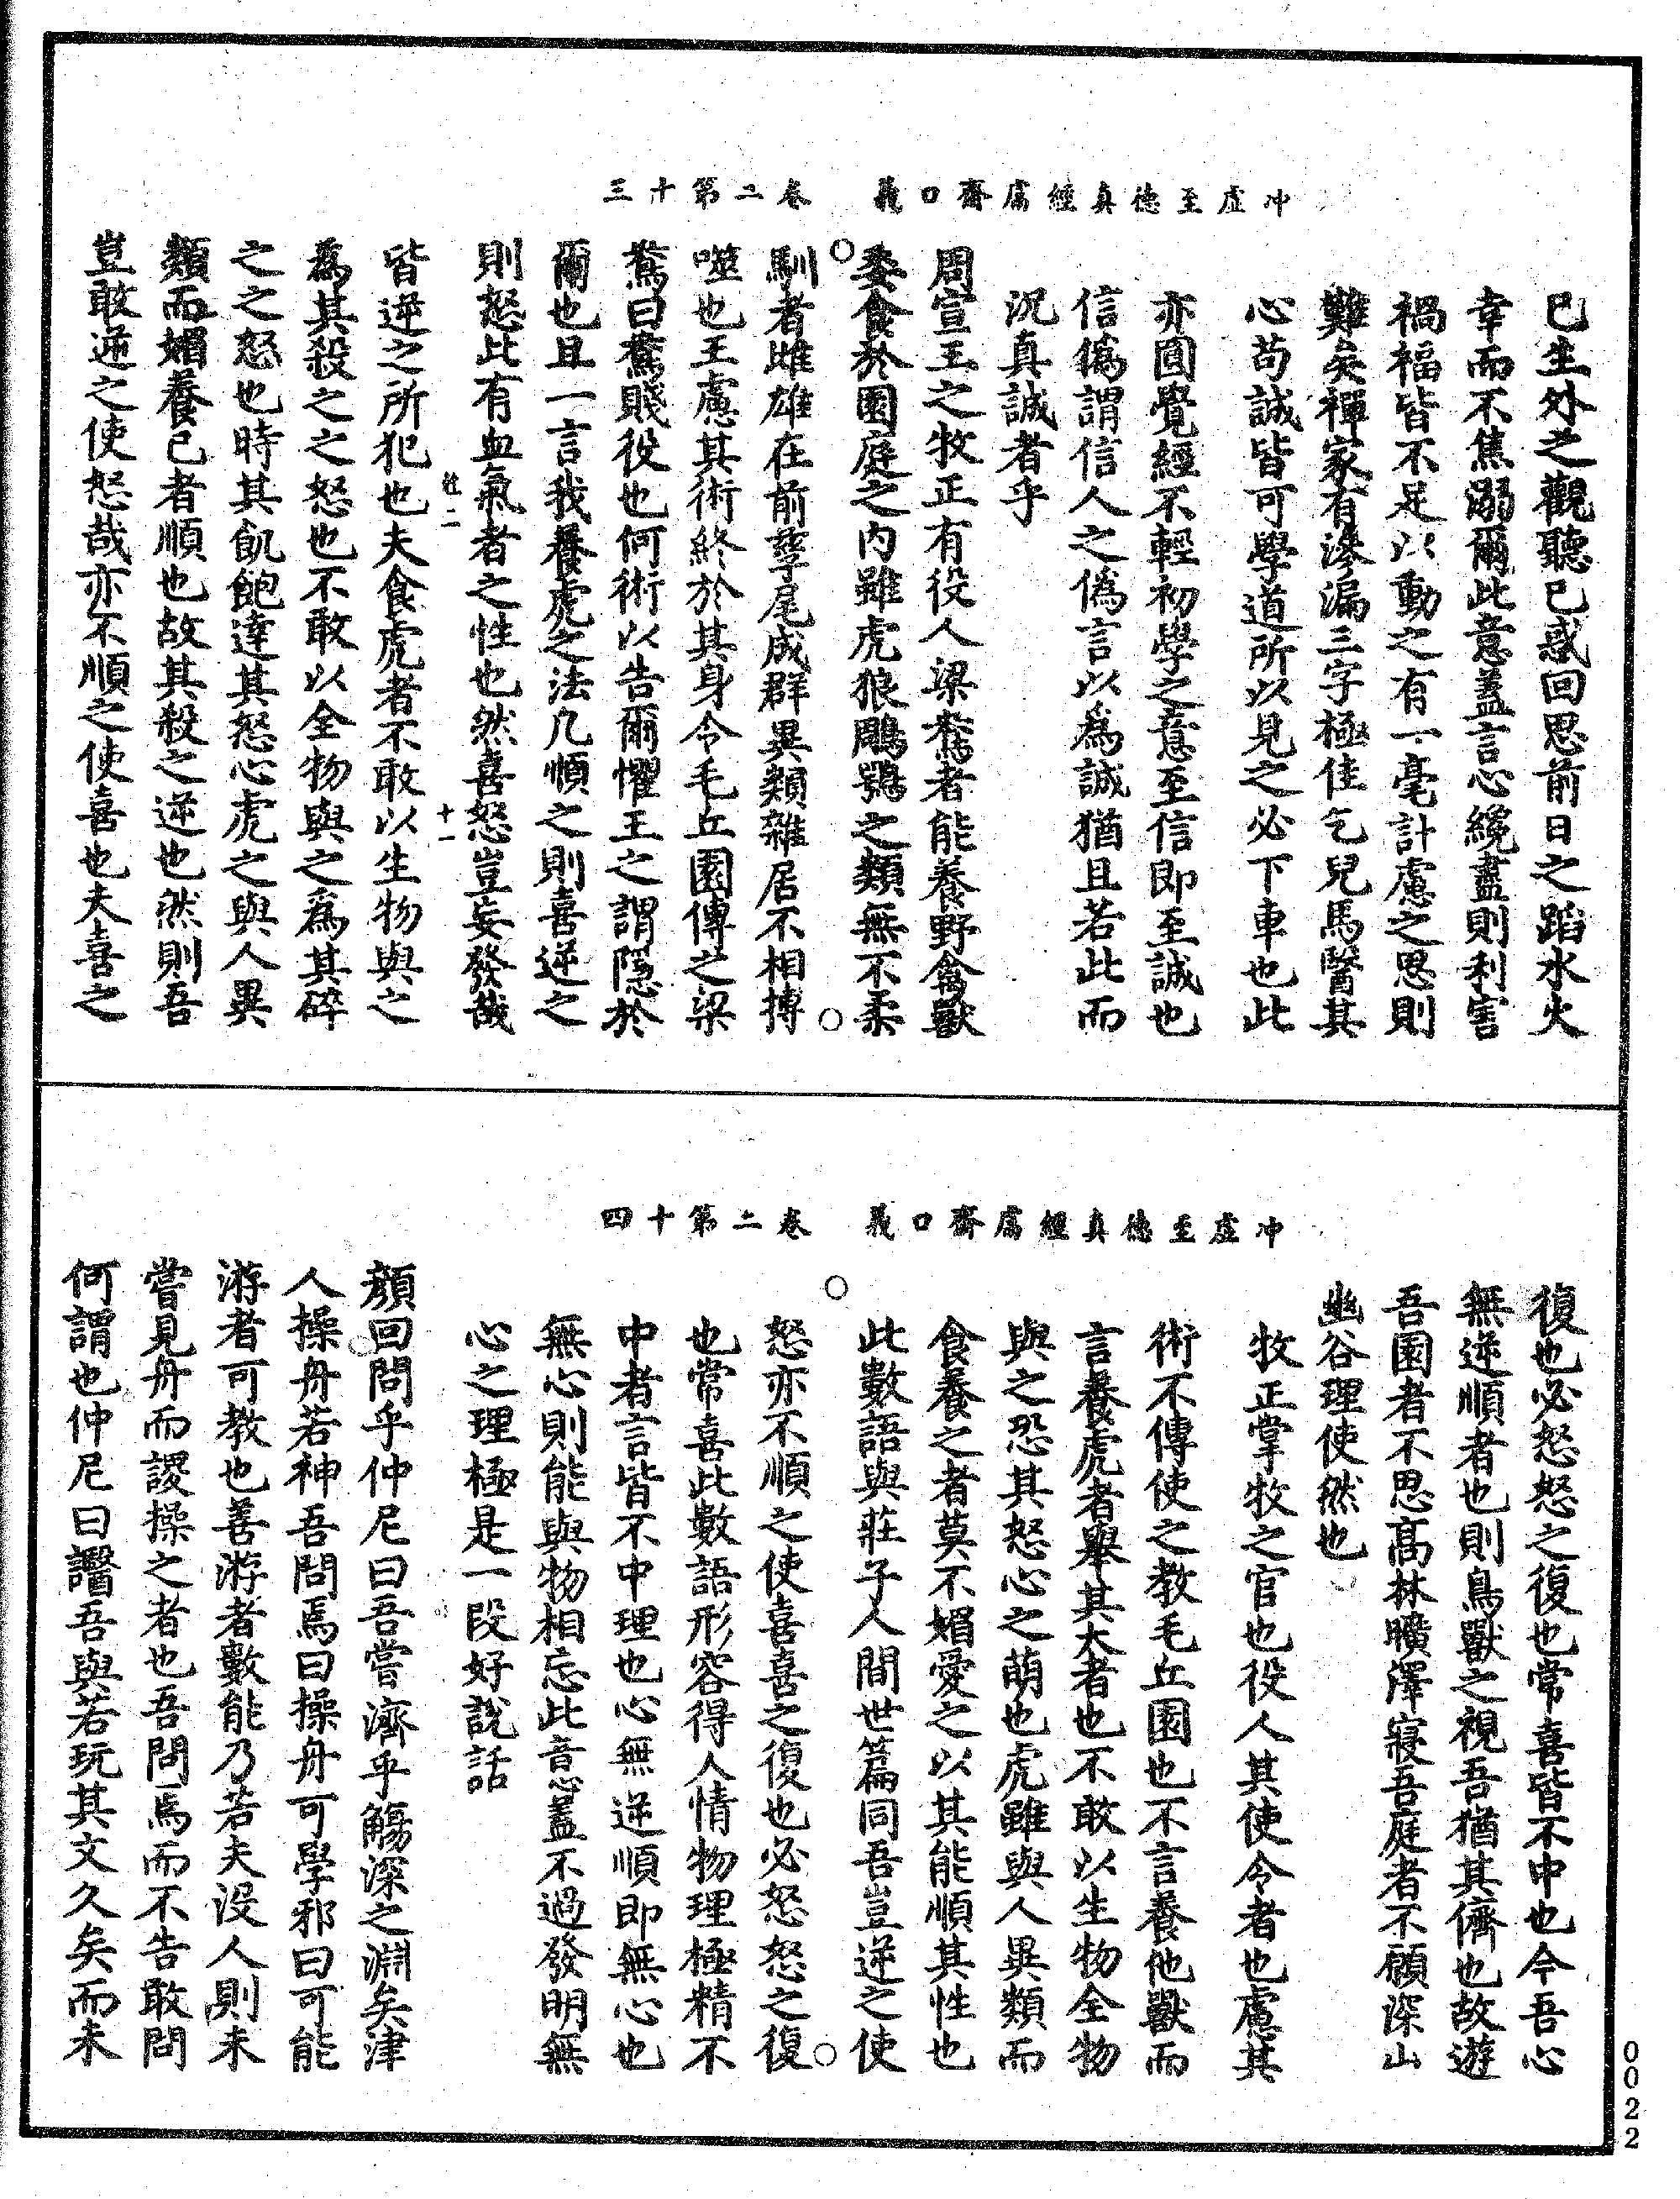 冲虛至德真經鬳齋口義　卷二第十三
已生外之觀聽已惑回思前日之蹈水火
幸而不焦溺爾此意蓋言心纔盡則利害
禍福皆不足以動之有一毫計慮之思則
難矣禪家有滲漏三字極佳乞兒馬醫其
心苟誠皆可學道所以見之必下車也此
亦圓覺經不輕初學之意至信即至誠也
信僞謂信人之僞言以為誠猶且若此而
況真誠者乎
周宣王之牧正有役人梁鴦者能養野禽獸
委食於園庭之內雖虎狼鵰鶚之類無不柔
馴者雌雄在前孳尾成群異類雜居不相搏
噬也王慮其術終於其身令毛丘園傳之梁
鴦曰鴦賤役也何術以告爾懼王之謂隱於
爾也且一言我養虎之法凡順之則喜逆之
則怒此有血氣者之性也然喜怒豈妄發哉
十一
皆逆之所犯也夫食虎者不敢以生物與之
為其殺之之怒也不敢以全物與之為其碎
之之怒也時其飢飽達其怒心虎之與人異
類而媚養己者順也故其殺之逆也然則吾
豈敢逆之使怒哉亦不順之使喜也夫喜之
冲虛至德真經鬳齋口義　卷二第十四
復也必怒怒之復也常喜皆不中也今吾心
無逆順者也則鳥獸之視吾猶其儕也故遊
吾園者不思高林曠澤寢吾庭者不願深山
幽谷理使然也
牧正掌牧之官也役人其使令者也慮其
術不傳使之教毛丘園也不言養他獸而
言養虎者舉其大者也不敢以生物全物
與之恐其怒心之萌也虎雖與人異類而
食養之者莫不媚愛之以其能順其性也
此數語與莊子人間世篇同吾豈逆之使
怒亦不順之使喜喜之復也必怒怒之復
也常喜此數語形容得人情物理極精不
中者言皆不中中理也心無逆順即無心也
無心則能與物相忘此意蓋不過發明無
心之理極是一段好說話
顏回問乎仲尼曰吾嘗濟乎觴深之淵矣津
人操舟若神吾問焉曰操舟可學邪曰可能
游者可教也善游者數能乃若夫没人則未
嘗見舟而謖操之者也吾問焉而不告敢問
何謂也仲尼曰譩吾與若玩其文久矣而未
0022